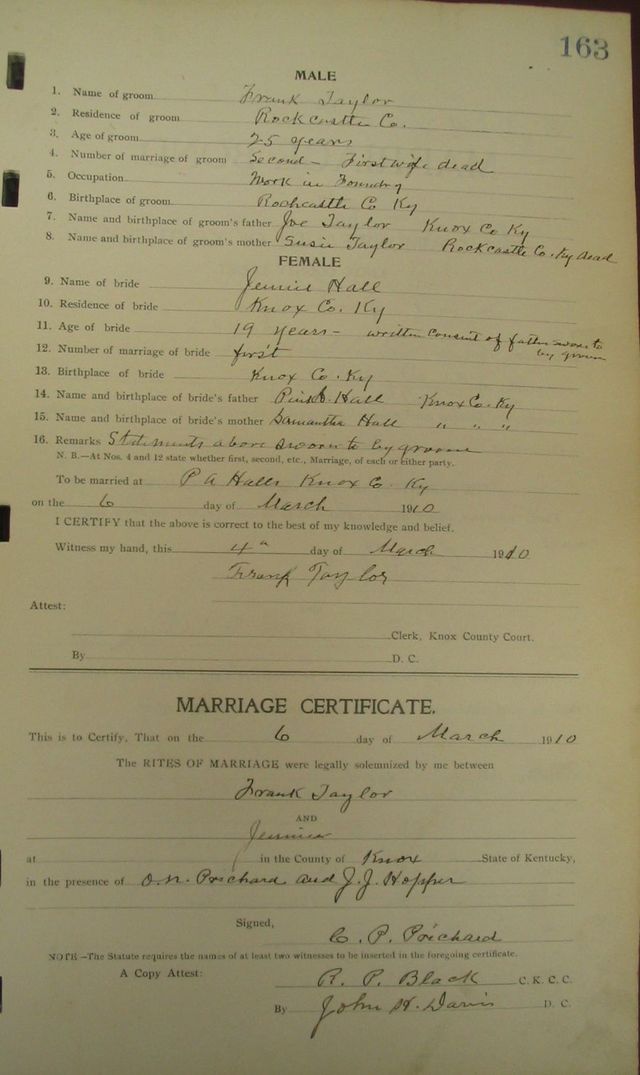 163
MALE
1. Name of groom Frank Taylor
2. Residence of groom Rockcastle Co.
3. Age of groom 25 years
4. Number of marriage of groom Second - First wife dead
5. Occupation Work in Foundry
6. Birthplace of groom Rockcastle Co Ky
7. Name and birthplace of groom's father Joe Taylor Knox Co Ky
8. Name and birthplace of groom's mother Susie Taylor Rockcastle Co. Ky dead
FEMALE
9. Name of bride Jennie Hall
10. Residence of bride Knox Co. Ky
11. Age of bride 19 years - written consent of father sworn to
by groom
12. Number of marriage of bride first
13. Birthplace of bride Knox Co. Ky
14. Name and birthplace of bride's father Hall Knox Co. Ky
15. Name and birthplace of bride's mother Samantha Hall " " "
16. Remarks Statements above sworn to by groom
N. B.—At Nos. 4 and 12 state whether first, second, etc., Marriage, of each or either party.
To be married at P A Halls Knox Co. Ky
on the 6 day of March 1910
I CERTIFY that the above is correct to the best of my knowledge and belief.
Witness my hand, this 4" day of March 1910
Frank Taylor
Attest:
Clerk, Knox County Court.
By D. C.
MARRIAGE CERTIFICATE.
This is to Certify, That on the 6 day of March 1910
The RITES OF MARRIAGE were legally solemnized by me between
Frank Taylor
AND
Jennie
at in the County of Knox State of Kentucky,
in the presence of O. N. Prichard and J. J. Hopper
Signed,
C. P. Prichard
NOTE—The Statute requires the names of at least two witnesses to be inserted in the foregoing certificate.
A Copy Attest: R. P. Black C. K. C. C.
By John H. Davis D. C.